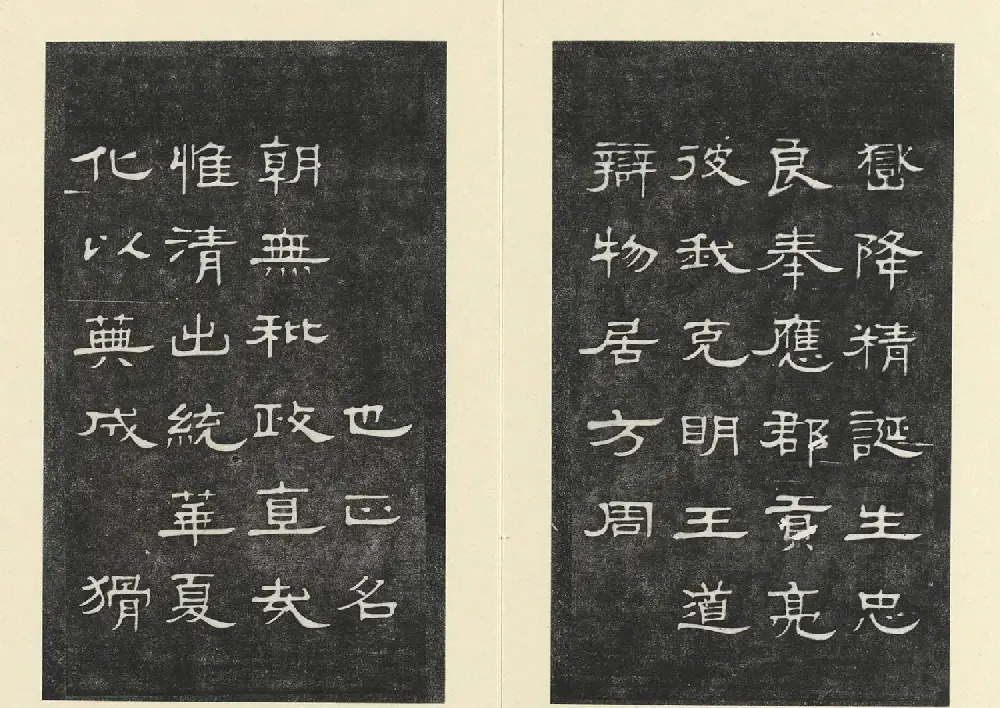 嶽降精誕生忠
良奉應郡貢亮
彼我克明王道
辯物居方周
也正名
朝無秕政直哉
惟清出統華夏
化以蕇成猾